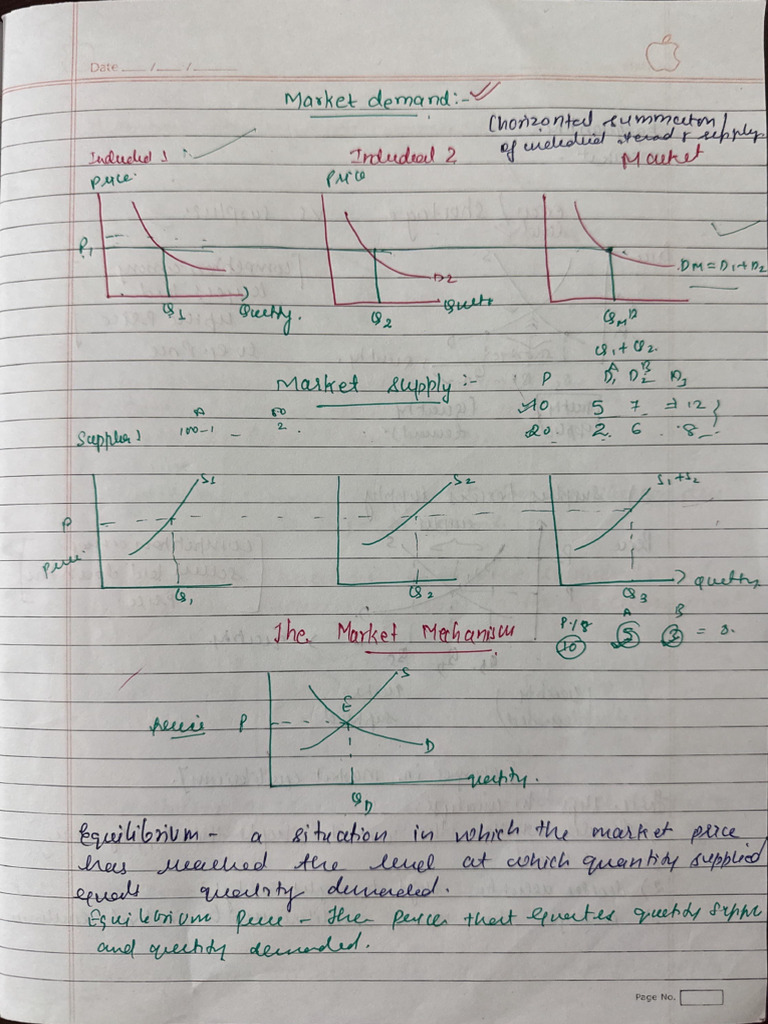 Date ___/___/___
Market demand:-
(horizontal summation
of individual & supply
Individual 1 Individual 2 Market
Price Price
P1
D2 DM = D1 + D2
Q1 Quantity. Q2 QM
Q1 + Q2.
Market supply:- P D1 D2 D3
A B
10 5 7 = 12
20 2 6 8
Supplier 1 100-1 2
S1 S2 S1+S2
P
Price
Q1 Q2 Q3 quantity
The Market Mechanism P/8 A B
10 5 3 = 8.
S
E
price P
D
quantity.
QD
Equilibrium - a situation in which the market price
has reached the level at which quantity supplied
equals quantity demanded.
Equilibrium price - the price that equates quantity suppl
and quantity demanded.
Page No.